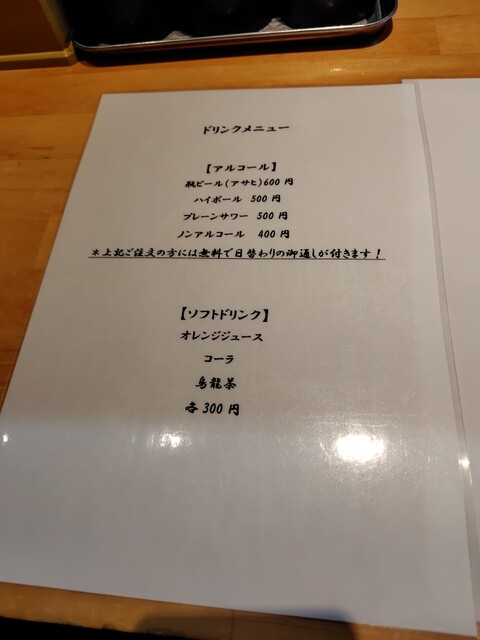 ドリンクメニュー
【アルコール】
瓶ビール(アサヒ)600 円
ハイボール 500 円
プレーンサワー 500 円
ノンアルコール 400 円
*上記ご注文の方には無料で日替わりの御通しが付きます！
【ソフトドリンク】
オレンジジュース
コーラ
烏龍茶
各300 円